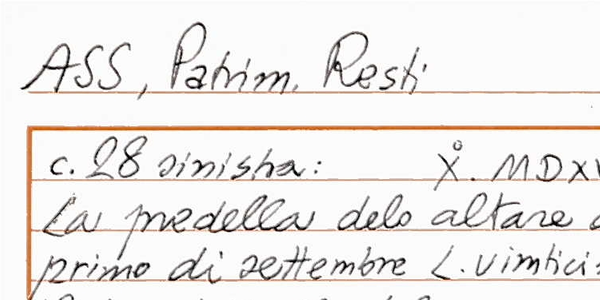 ASS, Patrim. Resti
c. 28 sinistra: X̊. MDXV
La predella delo altare
primo di settembre L. vinticis